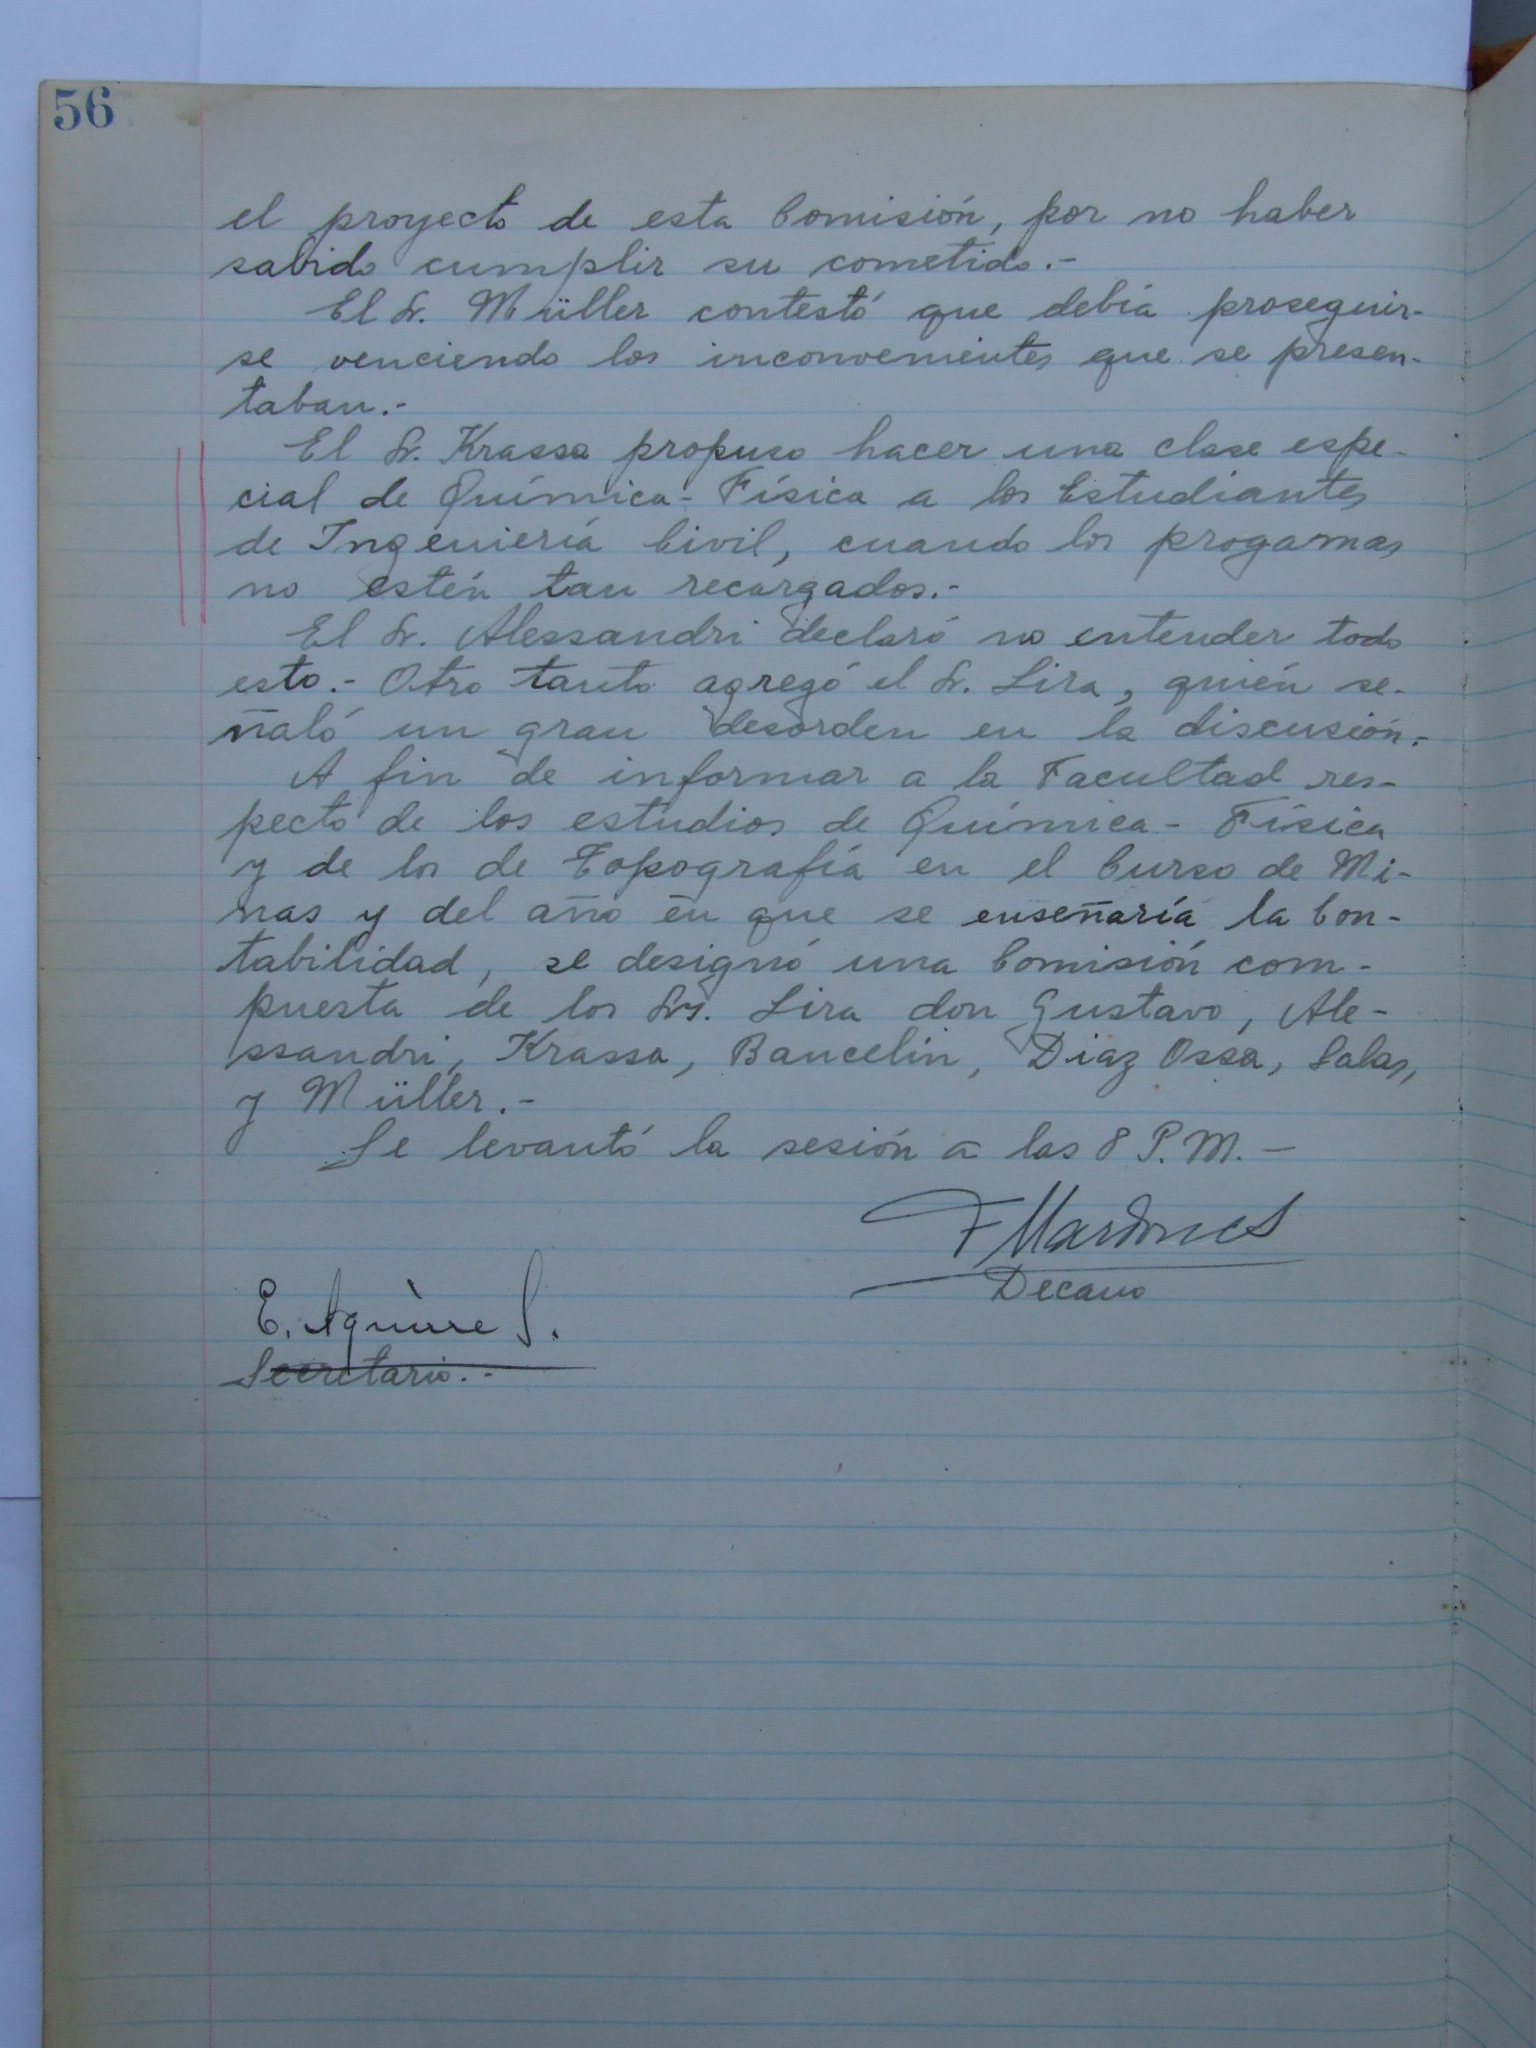 56
el proyecto de esta Comisión, por no haber
sabido cumplir su cometido.-
El Sr. Müller contestó que debía proseguir-
se venciendo los inconvenientes que se presen-
taban.-
El Sr. Krassa propuso hacer una clase espe-
cial de Química-Física a los Estudiantes
de Ingeniería Civil, cuando los progamas
no estén tan recargados.-
El Sr. Alessandri declaró no entender todo
esto.- Otro tanto agregó el Sr. Lira, quién se-
ñaló un gran desorden en la discusión.-
A fin de informar a la Facultad res-
pecto de los estudios de Química-Física
y de los de Topografía en el Curso de Mi-
nas y del año en que se enseñaría la Con-
tabilidad, se designó una Comisión com-
puesta de los Srs. Lira don Gustavo, Ale-
ssandri, Krassa, Bancelin, Diaz Ossa, Salas,
y Müller.-
Se levantó la sesión a las 8 P.M.-
F Mardones
Decano
E. Aguirre S.
Secretario.-